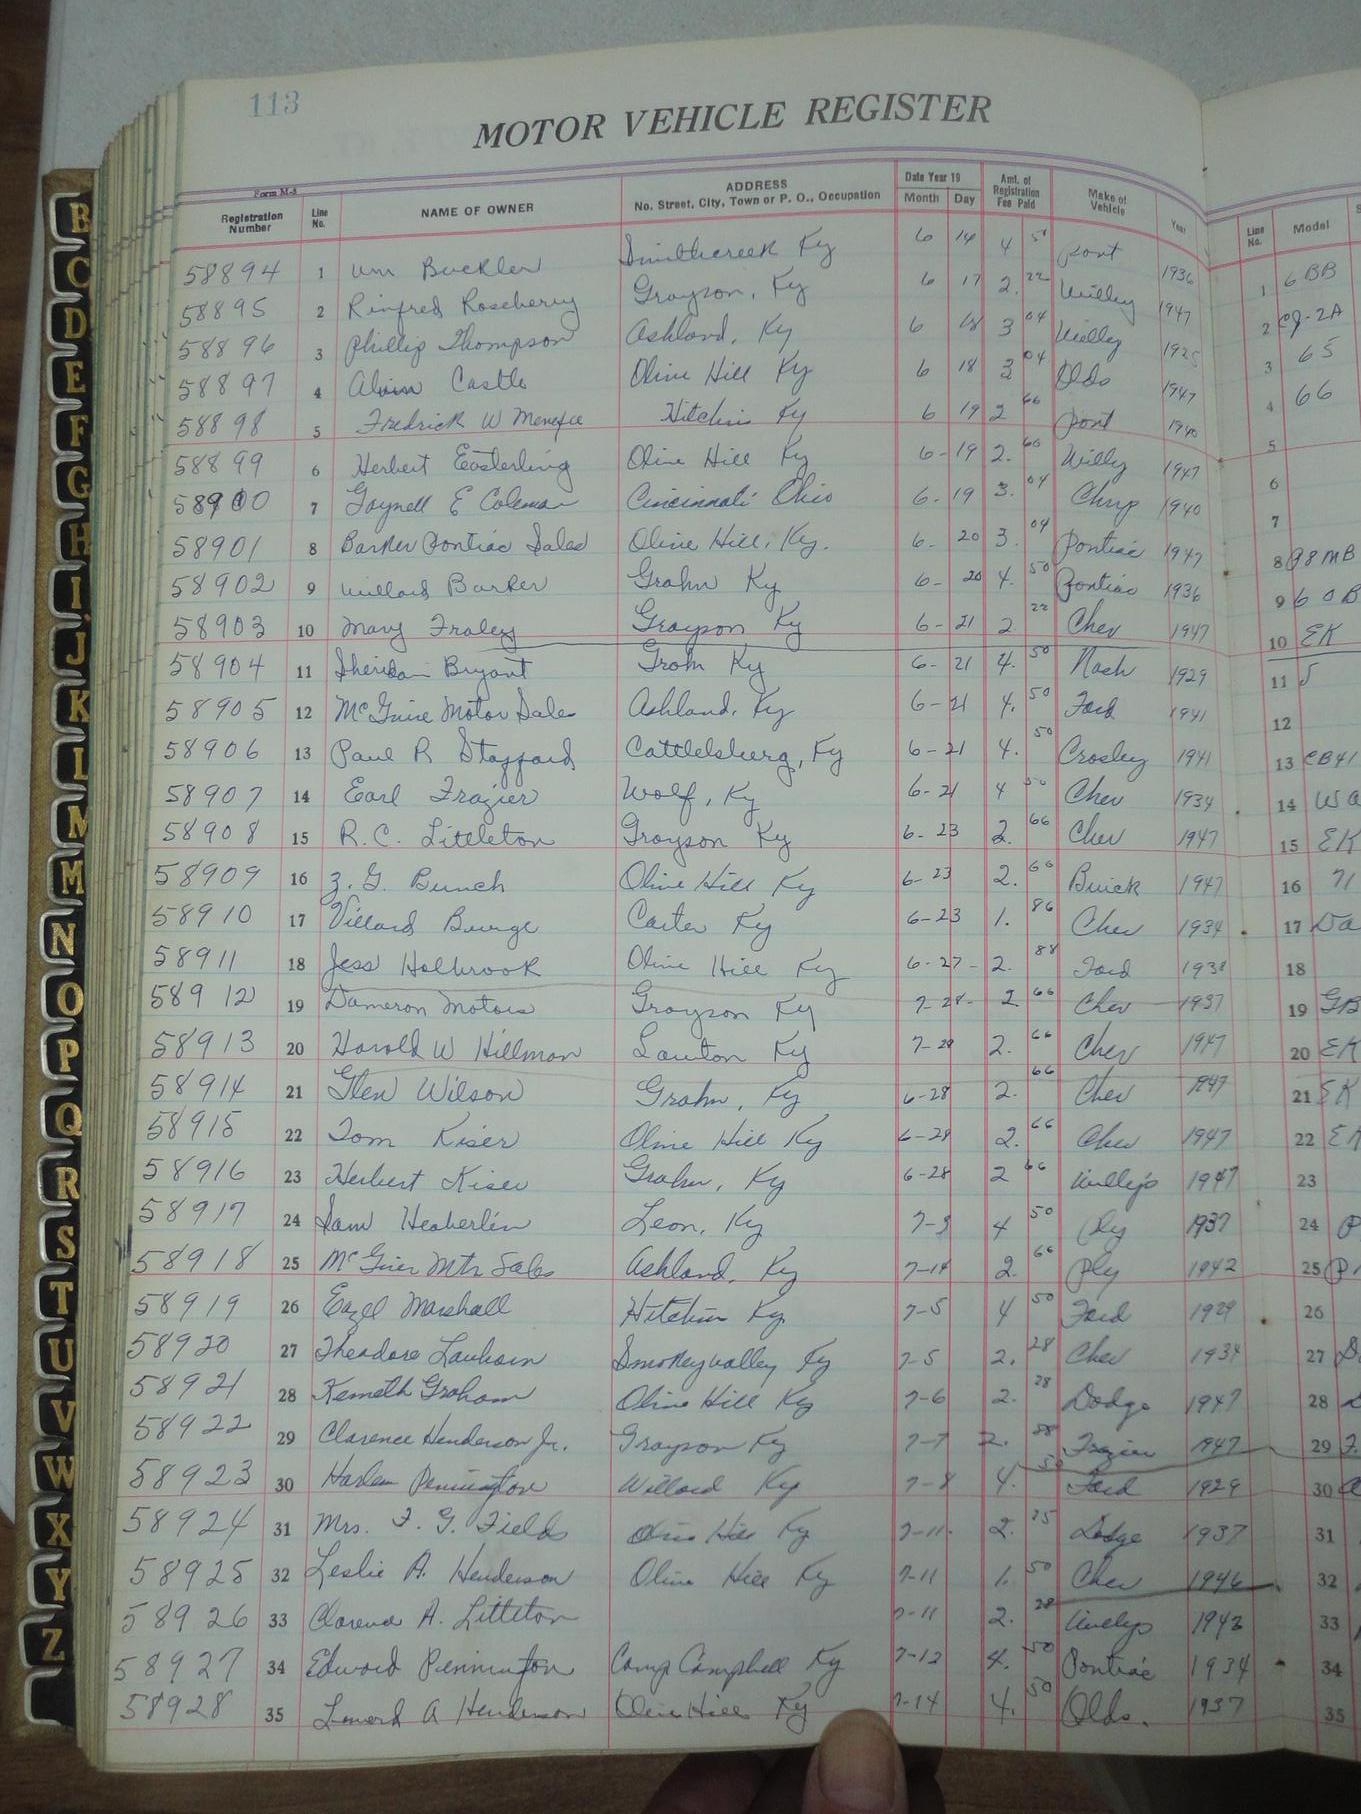 113
MOTOR VEHICLE REGISTER
Form M-8
Registration Number Line No. NAME OF OWNER ADDRESS No. Street, City, Town or P. O., Occupation Date Year 19 Month Day Amt. of Registration Fee Paid Make of Vehicle Year Line No. Model
58894 1 Wm Buckler Smithcreek Ky 6 14 4 50 Pont 1936 1 6 BB
58895 2 Rinfred Roseberry Grayson, Ky 6 17 2. 22 Willy 1947 2 CJ-2A
58896 3 Phillip Thompson Ashland, Ky 6 18 3 04 Willy 3 65
58897 4 Alvin Castle Olive Hill Ky 6 18 3 04 Olds 1947 4 66
58898 5 Fredrick W Menefee Hitchins Ky 6 19 2 66 Pont 1940 5
58899 6 Herbert Easterling Olive Hill Ky 6-19 2. 66 Willy 1947 6
58900 7 Gaynell E Coleman Cincinnati Ohio 6-19 3. 04 Chryp 1940 7
58901 8 Barker Pontiac Sales Olive Hill, Ky. 6- 20 3. 04 Pontiac 1947 8 98 MB
58902 9 Willard Barker Grahn Ky 6- 20 4. 50 Pontiac 1936 9 6 0 B
58903 10 Mary Fraley Grayson Ky 6-21 2 22 Chev 1947 10 EK
58904 11 Sheridan Bryant Grahn Ky 6-21 4. 50 Nash 1929 11
58905 12 McGuire Motor Sales Ashland, Ky 6-21 4. 50 Ford 1941 12
58906 13 Paul R Stafford Cattletsburg, Ky 6-21 4. 50 Crosley 1941 13 CB41
58907 14 Earl Frazier Wolf, Ky 6-21 4 50 Chev 1934 14
58908 15 R.C. Littleton Grayson Ky 6-23 2. 66 Chev 1947 15 EK
58909 16 Z. G. Bunch Olive Hill Ky 6-23 2. 66 Buick 1947 16 71
58910 17 Villard Burge Carter Ky 6-23 1. 86 Chev 1934 17 Da
58911 18 Jess Holbrook Olive Hill Ky 6-27- 2. 88 Ford 1938 18
58912 19 Dameron Motors Grayson Ky 7-28- 2 66 Chev 1937 19 GB
58913 20 Harold W Hillman Lawton Ky 7-28 2. 66 Chev 1947 20 EK
58914 21 Glen Wilson Grahn, Ky 6-28 2. 66 Chev 1947 21 EK
58915 22 Tom Kiser Olive Hill Ky 6-28 2. 66 Chev 1947 22
58916 23 Herbert Kiser Grahn, Ky 6-28 2 66 Willys 1947 23
58917 24 Sam Heaberlin Leon, Ky 7-3 4 50 Ply 1937 24
58918 25 McGuier Mtr Sales Ashland, Ky 7-14 2. 66 Ply 1942 25
58919 26 Ezel Marshall Hitchins Ky 7-5 4 50 Ford 1929 26
58920 27 Theodore Lauhorn Smokeyvalley Ky 7-5 2. 28 Chev 1934 27
58921 28 Kenneth Graham Olive Hill Ky 7-6 2. 28 Dodge 1947 28
58922 29 Clarence Henderson Jr. Grayson Ky 7-7 2. 88 Frazier 1947 29
58923 30 Harlan Pennington Willard Ky 7-8 4. 50 Ford 1929 30
58924 31 Mrs. F. G. Fields Olive Hill Ky 7-11 2. 25 Dodge 1937 31
58925 32 Leslie A. Henderson Olive Hill Ky 7-11 1. 50 Chev 1946 32
58926 33 Clarence A. Littleton 7-11 2. 28 Willys 1943 33
58927 34 Edward Pennington Camp Campbell Ky 7-12 4. 50 Pontiac 1934 34
58928 35 A Henderson Olive Hill Ky 7-14 4. 50 Olds. 1937 35
B
C
D
E
F
G
H
I
J
K
L
M
M
N
O
P
Q
R
S
T
U
V
W
X
Y
Z